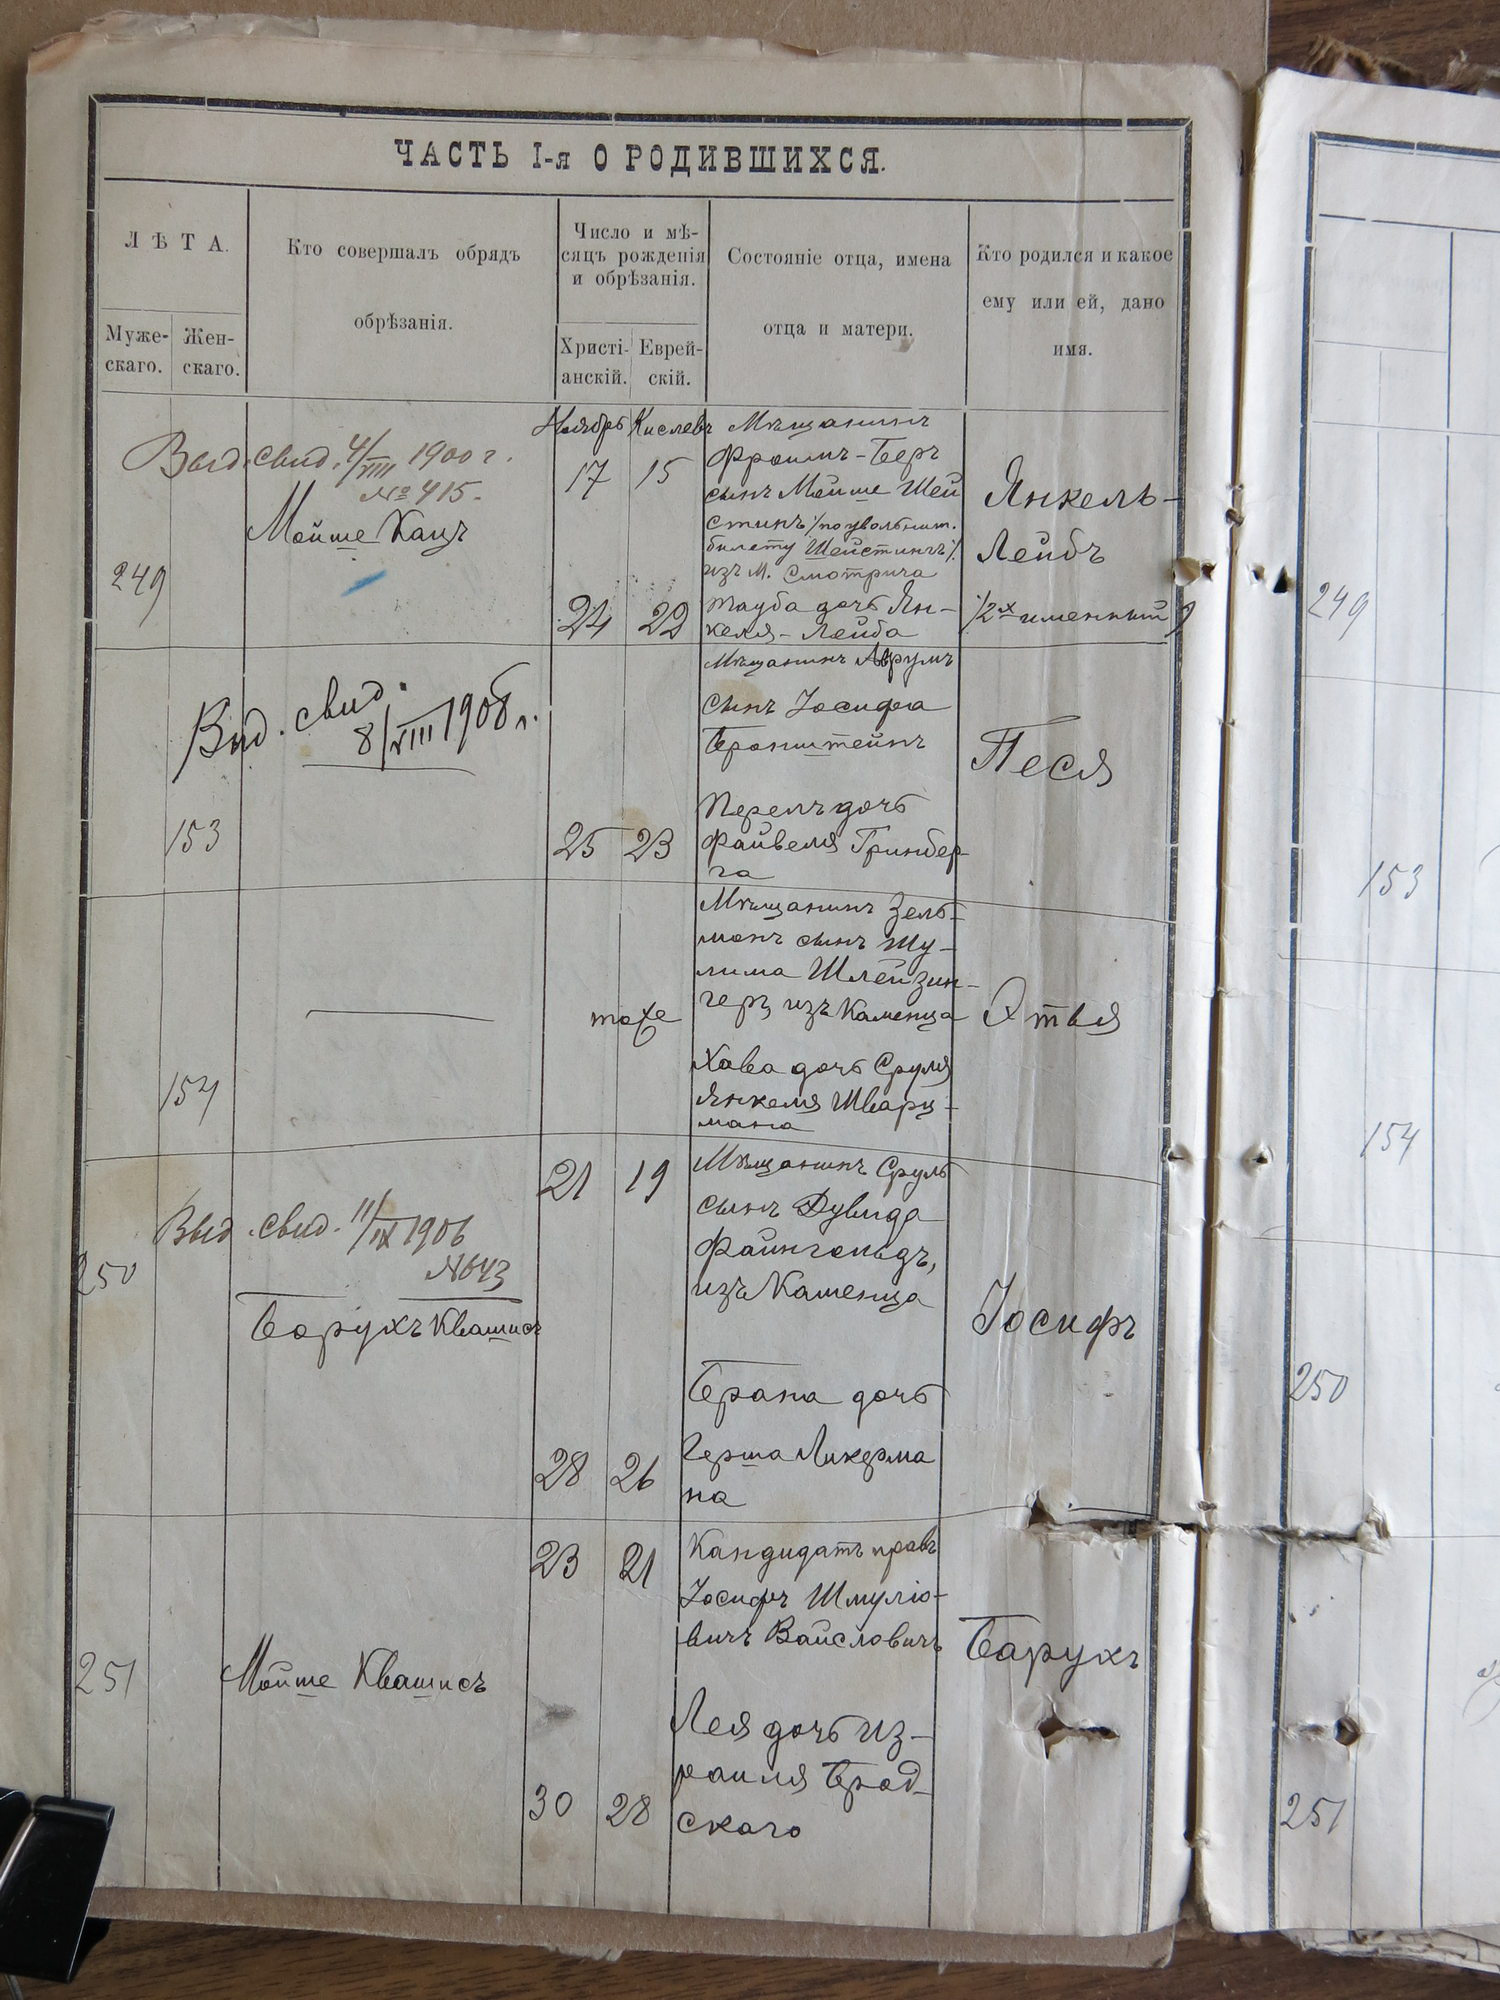 ЧАСТЬ I-я О РОДИВШИХСЯ.
ЛѢТА.
Муже-
скаго.
Жен-
скаго.
Кто совершалъ обрядъ
обрѣзанія.
Число и мѣ-
сяцъ рожденія
и обрѣзанія.
Христі-
анскій.
Еврей-
скій.
Состояніе отца, имена
отца и матери.
Кто родился и какое
ему или ей, дано
имя.
249
Выд. свид. 4/VIII 1900 г.
№ 415.
Мойше Кацъ
Ноябрь Кислевъ
17 15
24 22
Мѣщанинъ
Фроимъ-Беръ
сынъ Мойше Шей
стинъ /по увольнит.
билету Шейстинъ/
изъ м. Смотрича
Тауба дочь Ян-
келя-Лейба
Янкель-
Лейбъ
/2х именный/
153
Выд. свид.
8/VIII 1908 г.
25 23
Мѣщанинъ Аврумъ
сынъ Іосифа
Бронштейнъ
Перель дочь
Файвеля Гринбер-
га
Песя
154
тоже
Мѣщанинъ Зель-
манъ сынъ Шу-
лима Шлейзин-
геръ изъ Каменца
Хава дочь Сруля
Янкеля Шварц-
мана
Этья
250
Выд. свид. 11/IX 1906
№ 643
Борухъ Квашисъ
21 19
28 26
Мѣщанинъ Сруль
сынъ Дувида
Файнгольдъ,
изъ Каменца
Брана дочь
Герша Ликерма
на
Іосифъ
251
Мойше Квашисъ
23 21
30 28
Кандидатъ правъ
Іосифъ Шмуліо-
вичъ Вайсловичъ
Лея дочь Из-
раиля Брод-
скаго
Барухъ
249
153
154
250
251